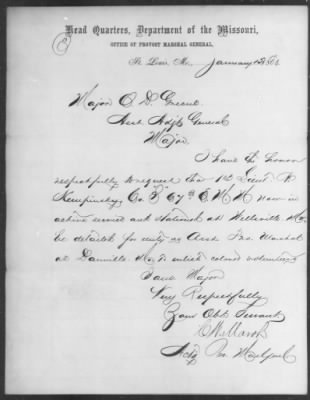 Head Quarters, Department of the Missouri,
OFFICE OF PROVOST MARSHAL GENERAL,
St. Louis, Mo., January
Major O. D. Greene.
Asst Adjt General
Major,
I have the honor
respectfully to request that 1st Lieut
Kempinsky, Co 67th E M M now in
active service and stationed at Wellsville Mo
be detailed for duty as Asst Pro. Marshal
at Danville Mo to enlist colored volunteers
I am Major
Very Respectfully
Your Obt. Servant
Actg Pro Marl Genl